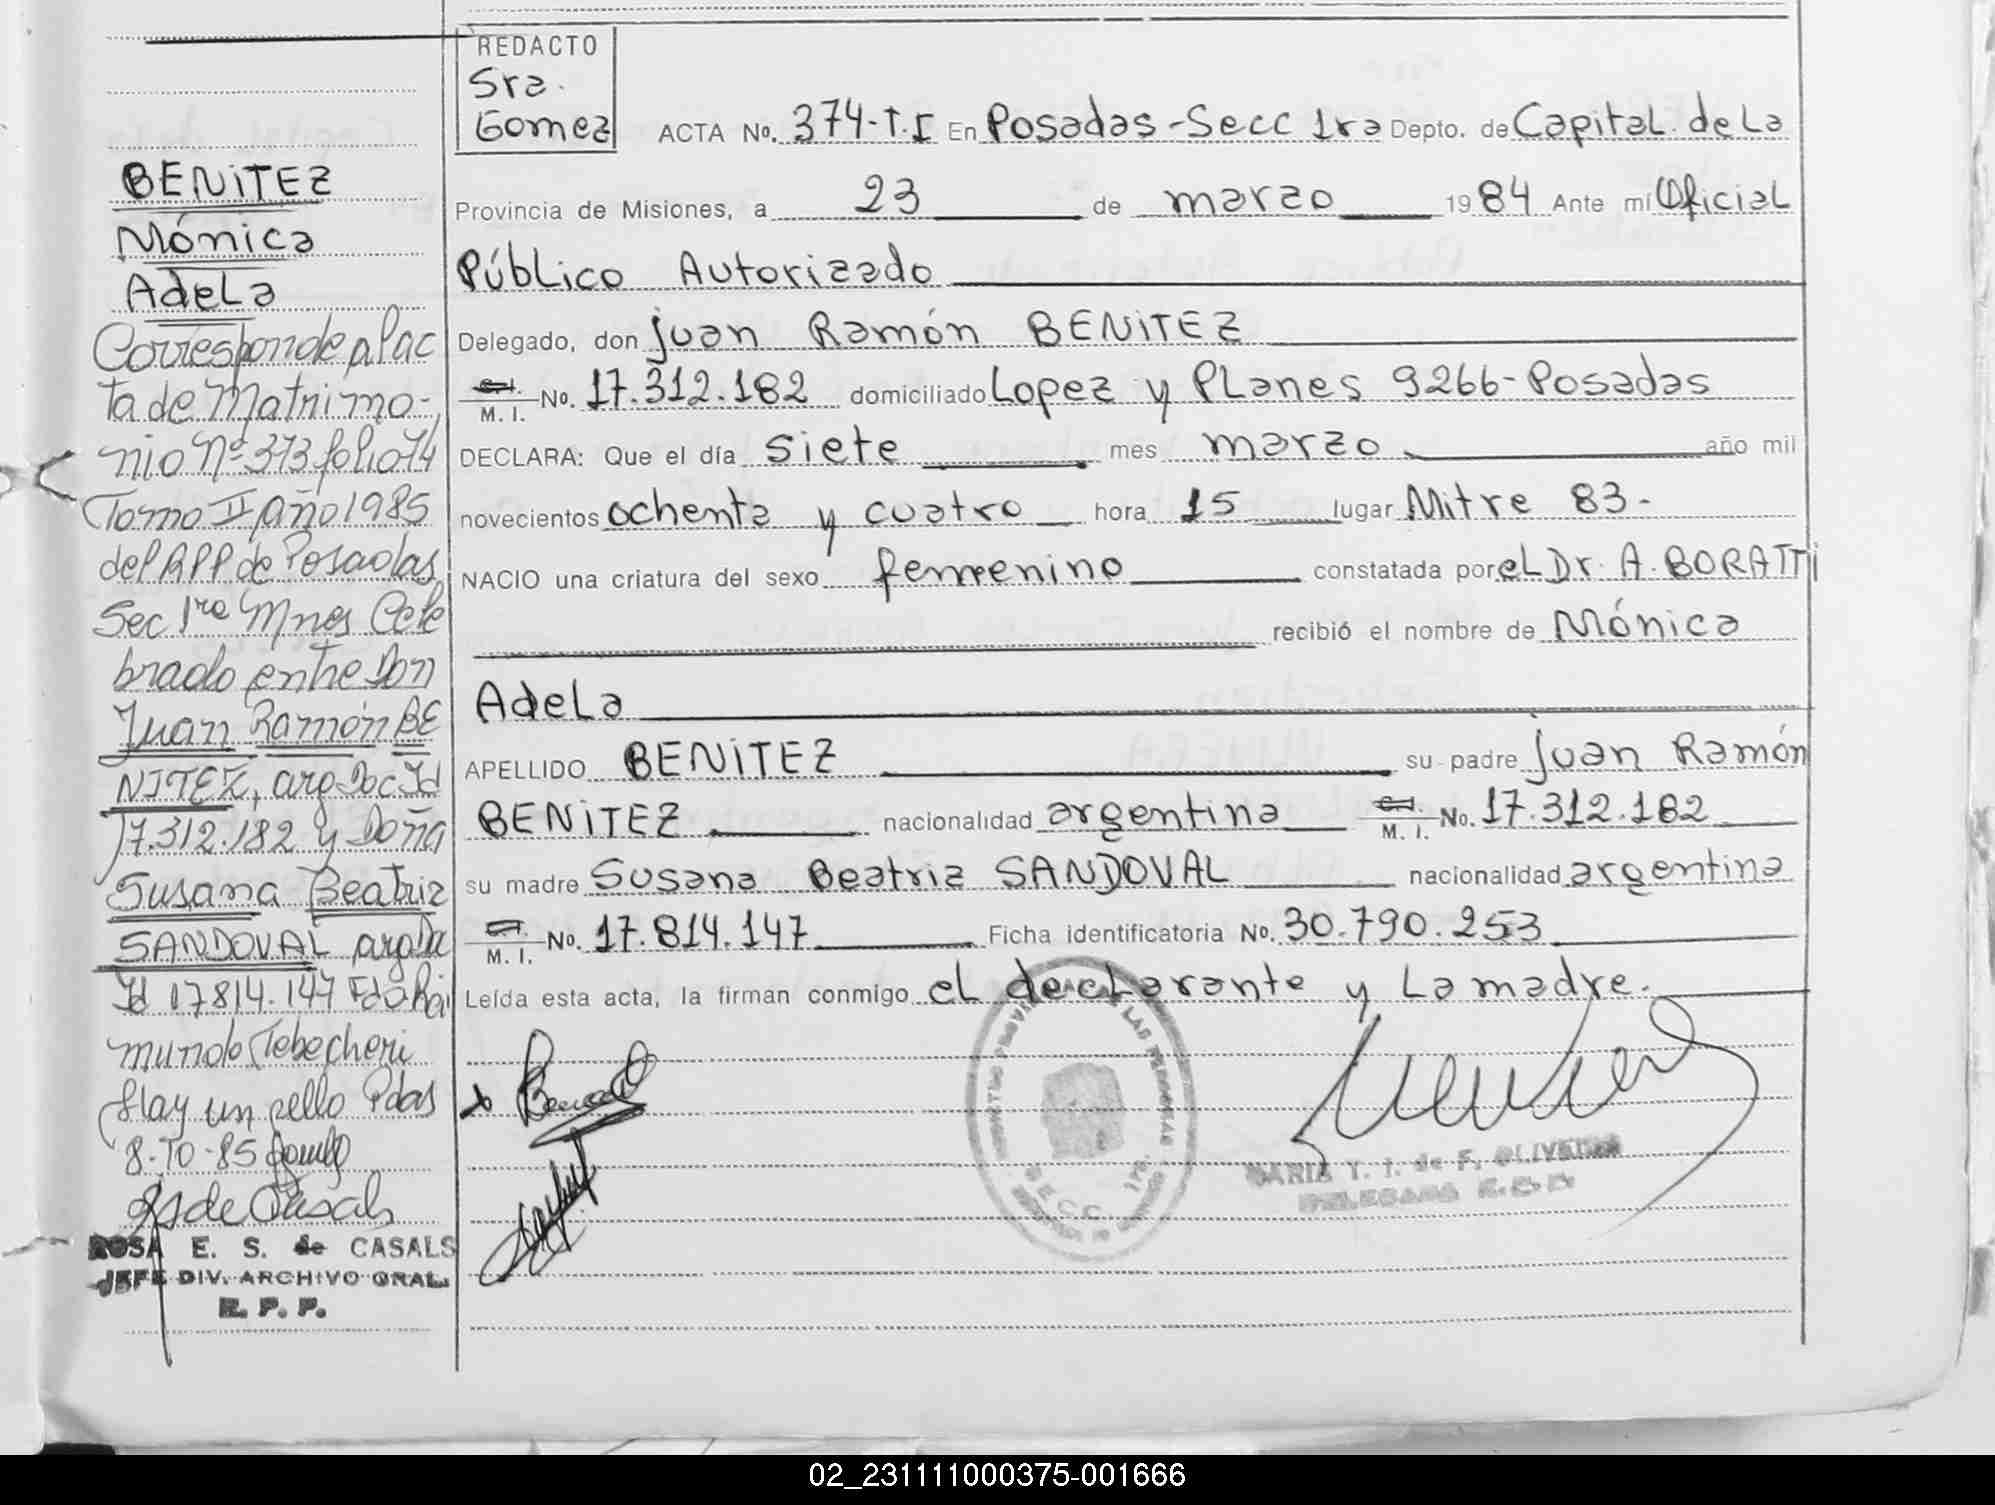 REDACTO
Sra.
Gomez
ACTA No. 374-T.I En Posadas-Secc 1ra Depto. de Capital de La
Provincia de Misiones, a 23 de marzo 1984 Ante mi Oficial
Público Autorizado
Delegado, don Juan Ramón BENITEZ
C.I. M. I. No. 17.312.182 domiciliado Lopez y PLanes 9266-Posadas
DECLARA: Que el día siete mes marzo año mil
novecientos ochenta y cuatro hora 15 lugar Mitre 83-
NACIO una criatura del sexo femenino constatada por eL Dr. A. BORATTi
recibió el nombre de Mónica
AdeLa
APELLIDO BENITEZ su padre Juan Ramón
BENITEZ nacionalidad argentina C.I. M. I. No. 17.312.182
su madre Susana Beatriz SANDOVAL nacionalidad argentina
C.I. M. I. No. 17.814.147 Ficha identificatoria No. 30.790.253
Leída esta acta, la firman conmigo eL decLarante y La madre.
BENITEZ
Mónica
AdeLa
Corresponde a l'ac
ta de Matrimo-
nio Nº 373 folio 74
Tomo II año 1985
del RPP de Posadas
Sec 1ra Mnes Cele
brado entre Don
Juan Ramón BE
NITEZ, arg Doc Id
17.312.182 y Doña
Susana Beatriz
SANDOVAL arg Do
Id 17814.147 Fdo Rai
mundo Tebecheri
Hay un sello Pdas
8-10-85
RS de Casals
ROSA E. S. de CASALS
JEFE DIV. ARCHIVO GRAL.
R. P. P.
SECC. 1ra.
MARIA T. I. de F. OLIVEIRA
DELEGADA
02_231111000375-001666